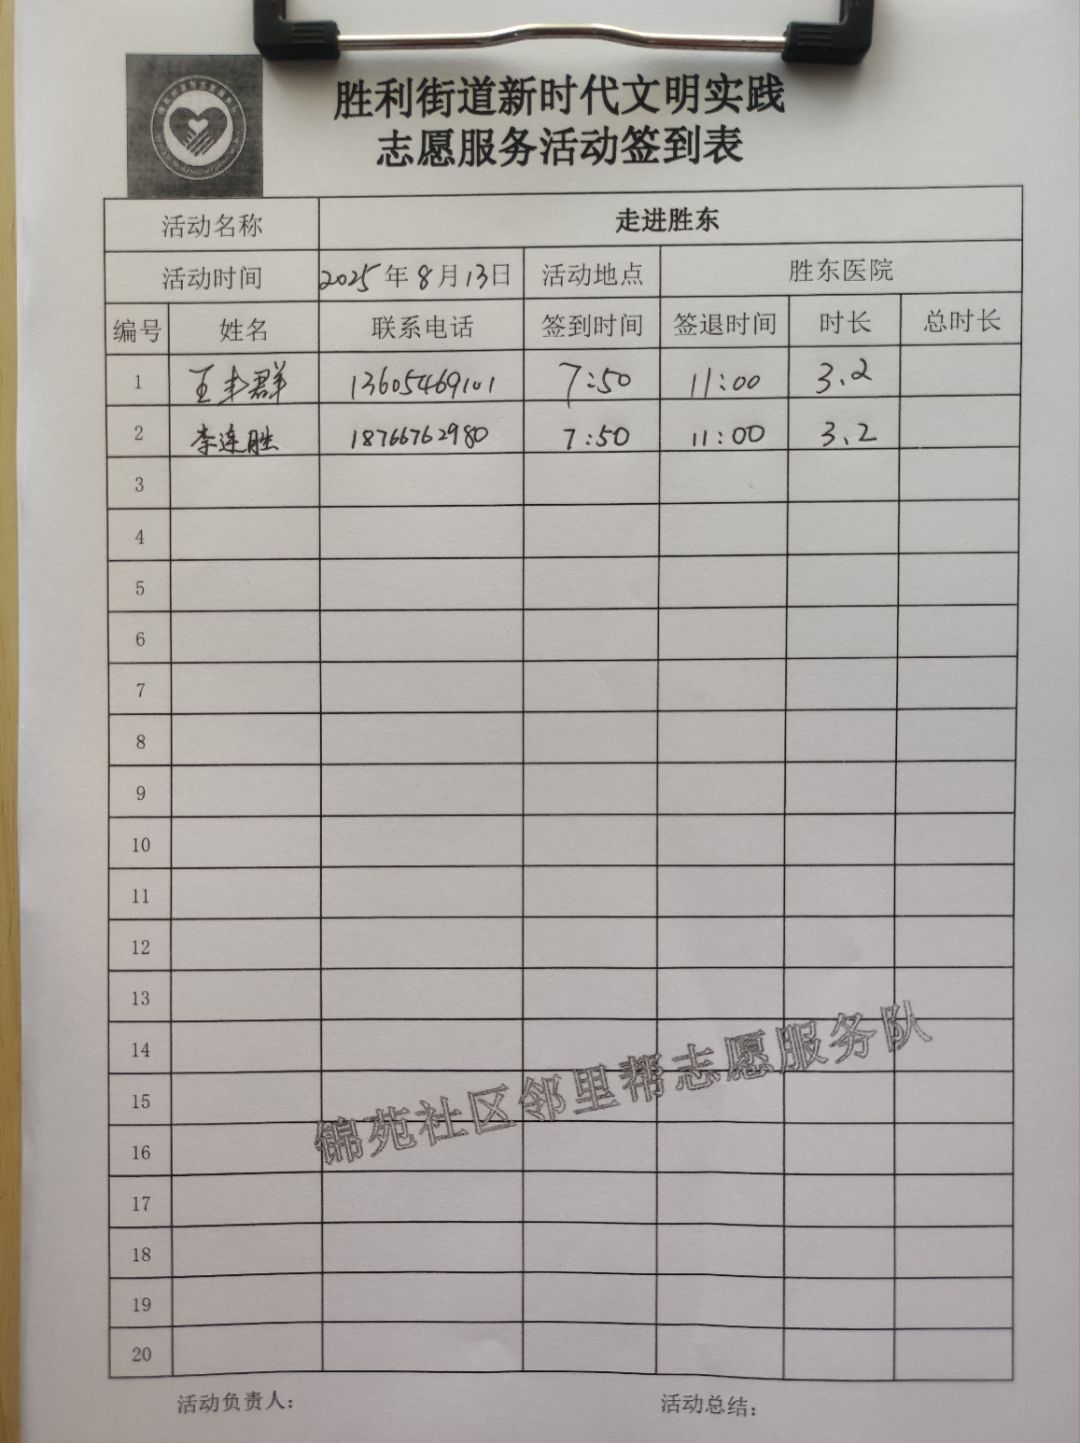 胜利街道新时代文明实践
志愿服务活动签到表
活动名称 走进胜东
活动时间 2025年8月13日 活动地点 胜东医院
编号 姓名 联系电话 签到时间 签退时间 时长 总时长
1 王丰群 13605469101 7:50 11:00 3.2
2 李连胜 18766762980 7:50 11:00 3.2
3
4
5
6
7
8
9
10
11
12
13
14
15
16
17
18
19
20
锦苑社区邻里帮志愿服务队
活动负责人: 活动总结: